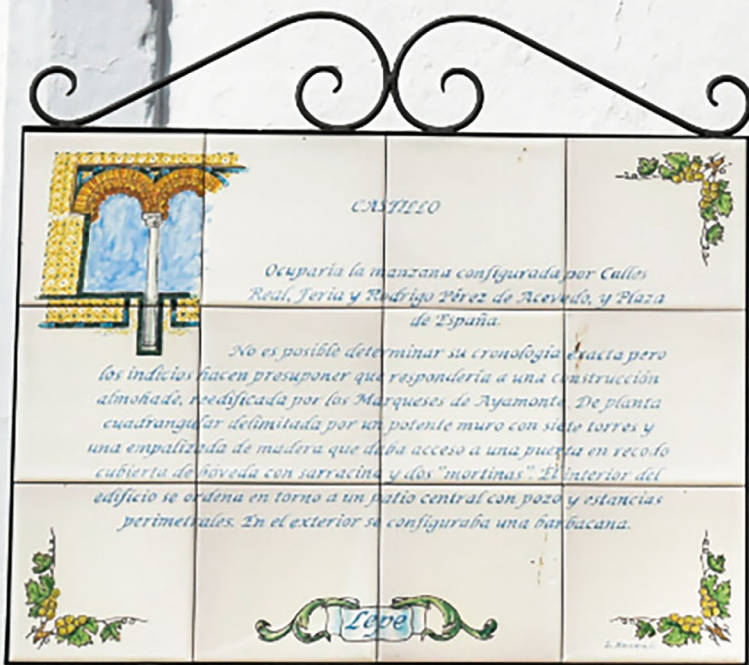 CASTILLO
Ocuparía la manzana configurada por Calles
Real, Feria y Rodrigo Pérez de Acevedo, y Plaza
de España.
No es posible determinar su cronología exacta pero
los indicios hacen presuponer que respondería a una construcción
almohade, reedificada por los Marqueses de Ayamonte. De planta
cuadrangular delimitada por un potente muro con siete torres y
una empalizada de madera que daba acceso a una puerta en recodo
cubierta de bóveda con sarracina y dos "mortinas". El interior del
edificio se ordena en torno a un patio central con pozo y estancias
perimetrales. En el exterior se configuraba una barbacana.
Lepe